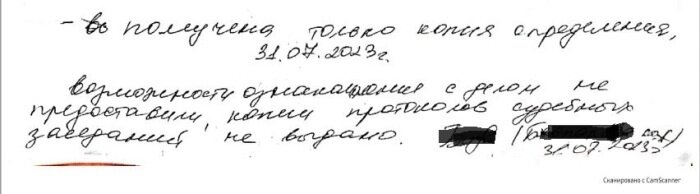 - получена только копия определения,
31.07.2023г.
возможности ознакомления с делом не
предоставили, копии протоколов судебных
заседаний не выдано.
31.07.2023г
Сканировано с CamScanner